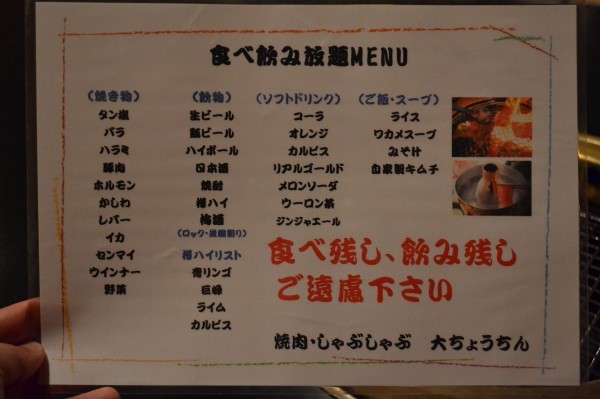 食べ飲み放題MENU
(焼き物)
タン塩
バラ
ハラミ
豚肉
ホルモン
かしわ
レバー
イカ
センマイ
ウインナー
野菜
(飲物)
生ビール
瓶ビール
ハイボール
日本酒
焼酎
樽ハイ
梅酒
(ロック・炭酸割り)
樽ハイリスト
青リンゴ
巨峰
ライム
カルピス
(ソフトドリンク)
コーラ
オレンジ
カルピス
リアルゴールド
メロンソーダ
ウーロン茶
ジンジャエール
(ご飯・スープ)
ライス
ワカメスープ
みそ汁
自家製キムチ
食べ残し、飲み残し
ご遠慮下さい
焼肉・しゃぶしゃぶ 大ちょうちん